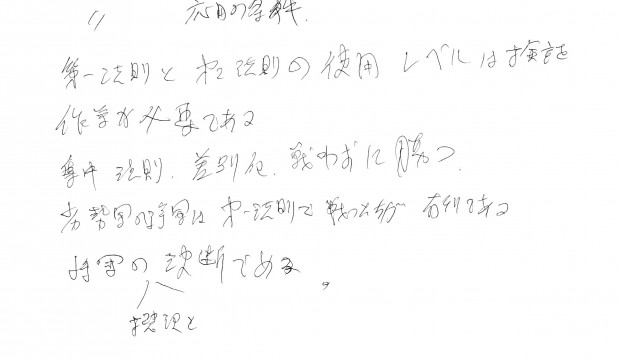 〃 応用の条件.
第一法則と第二法則の使用レベルは検討を
作業が必要である
集中 法則. 差別化. 戦わずに勝つ.
劣勢軍の将軍は第一法則で戦う方が有利である
将軍の決断である。